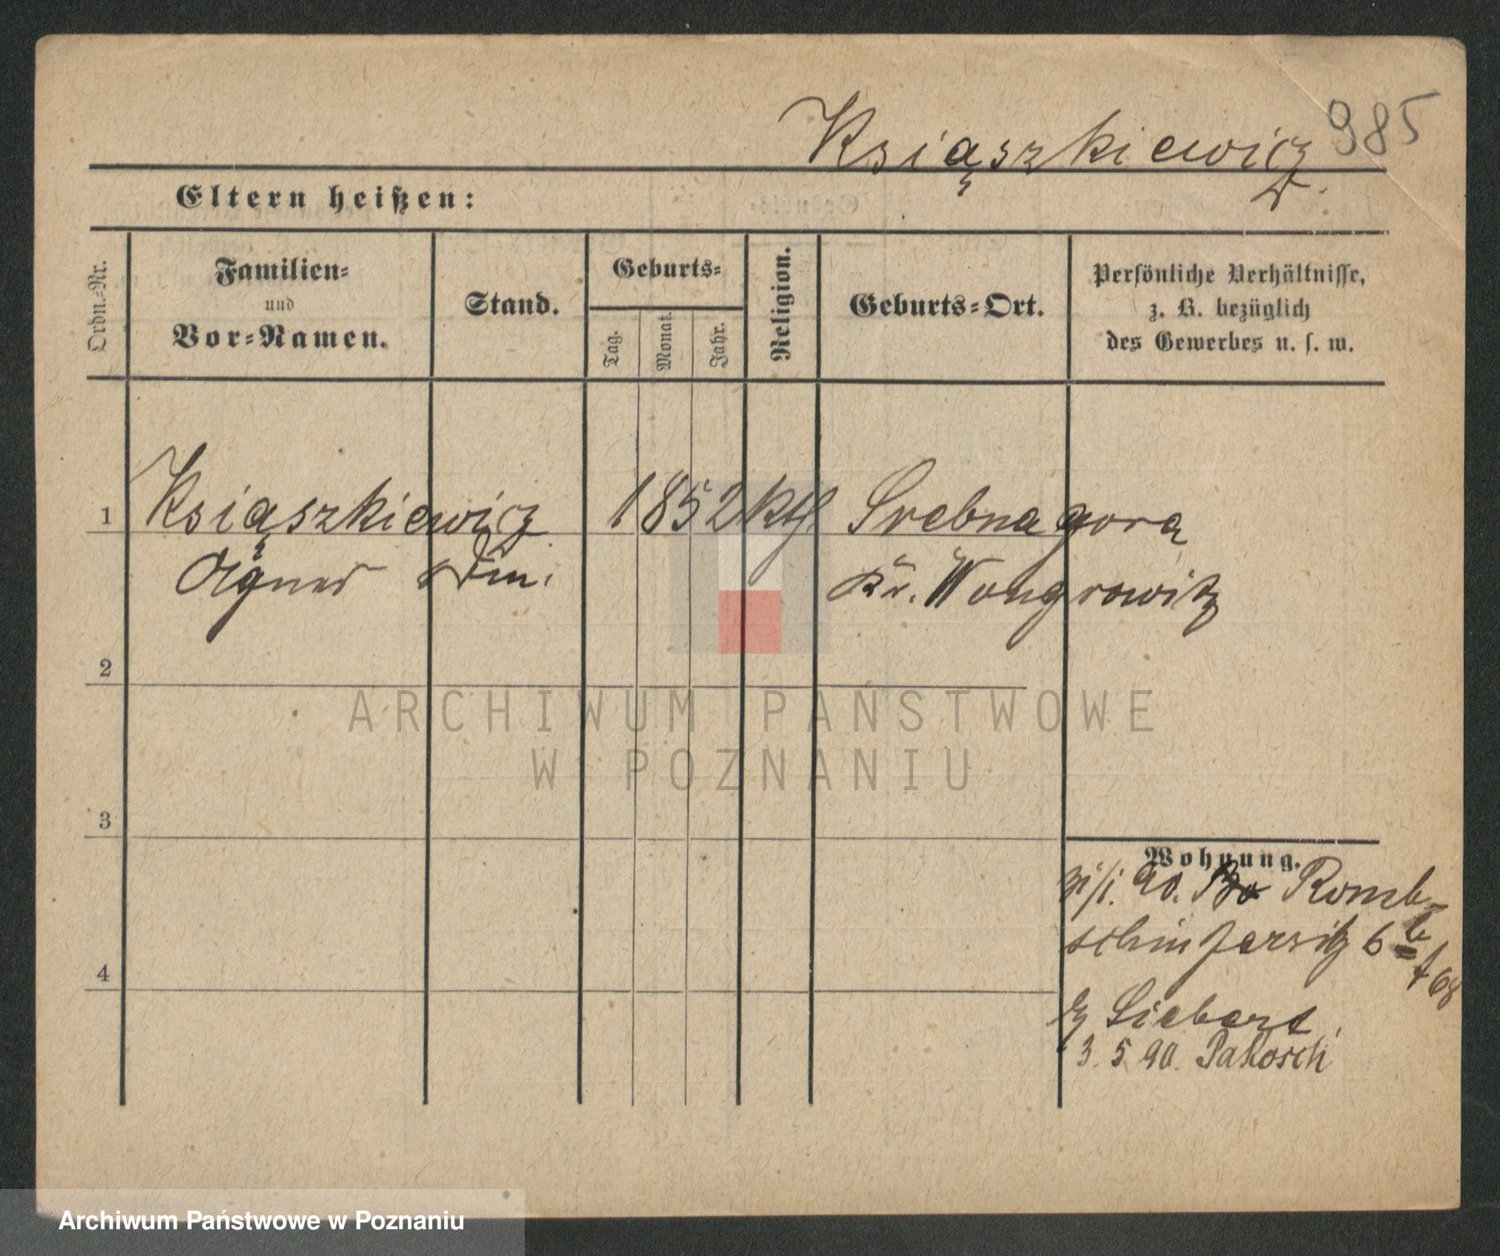 Książkiewicz 985
Eltern heißen:
Ordn.-Nr.
Familien-
und
Vor-Namen.
Stand.
Geburts-
Tag.
Monat.
Jahr.
Religion.
Geburts-Ort.
Persönliche Verhältnisse,
z. B. bezüglich
des Gewerbes u. s. w.
1 Ksiąszkiewicz 1852 ktl Srebna gora
Agnes Kr. Wongrowitz
2
3
4
Wohnung.
90. Romb-
schin 6
b Siebert
3. 5 90. Pakosch
ARCHIWUM PAŃSTWOWE
W POZNANIU
Archiwum Państwowe w Poznaniu